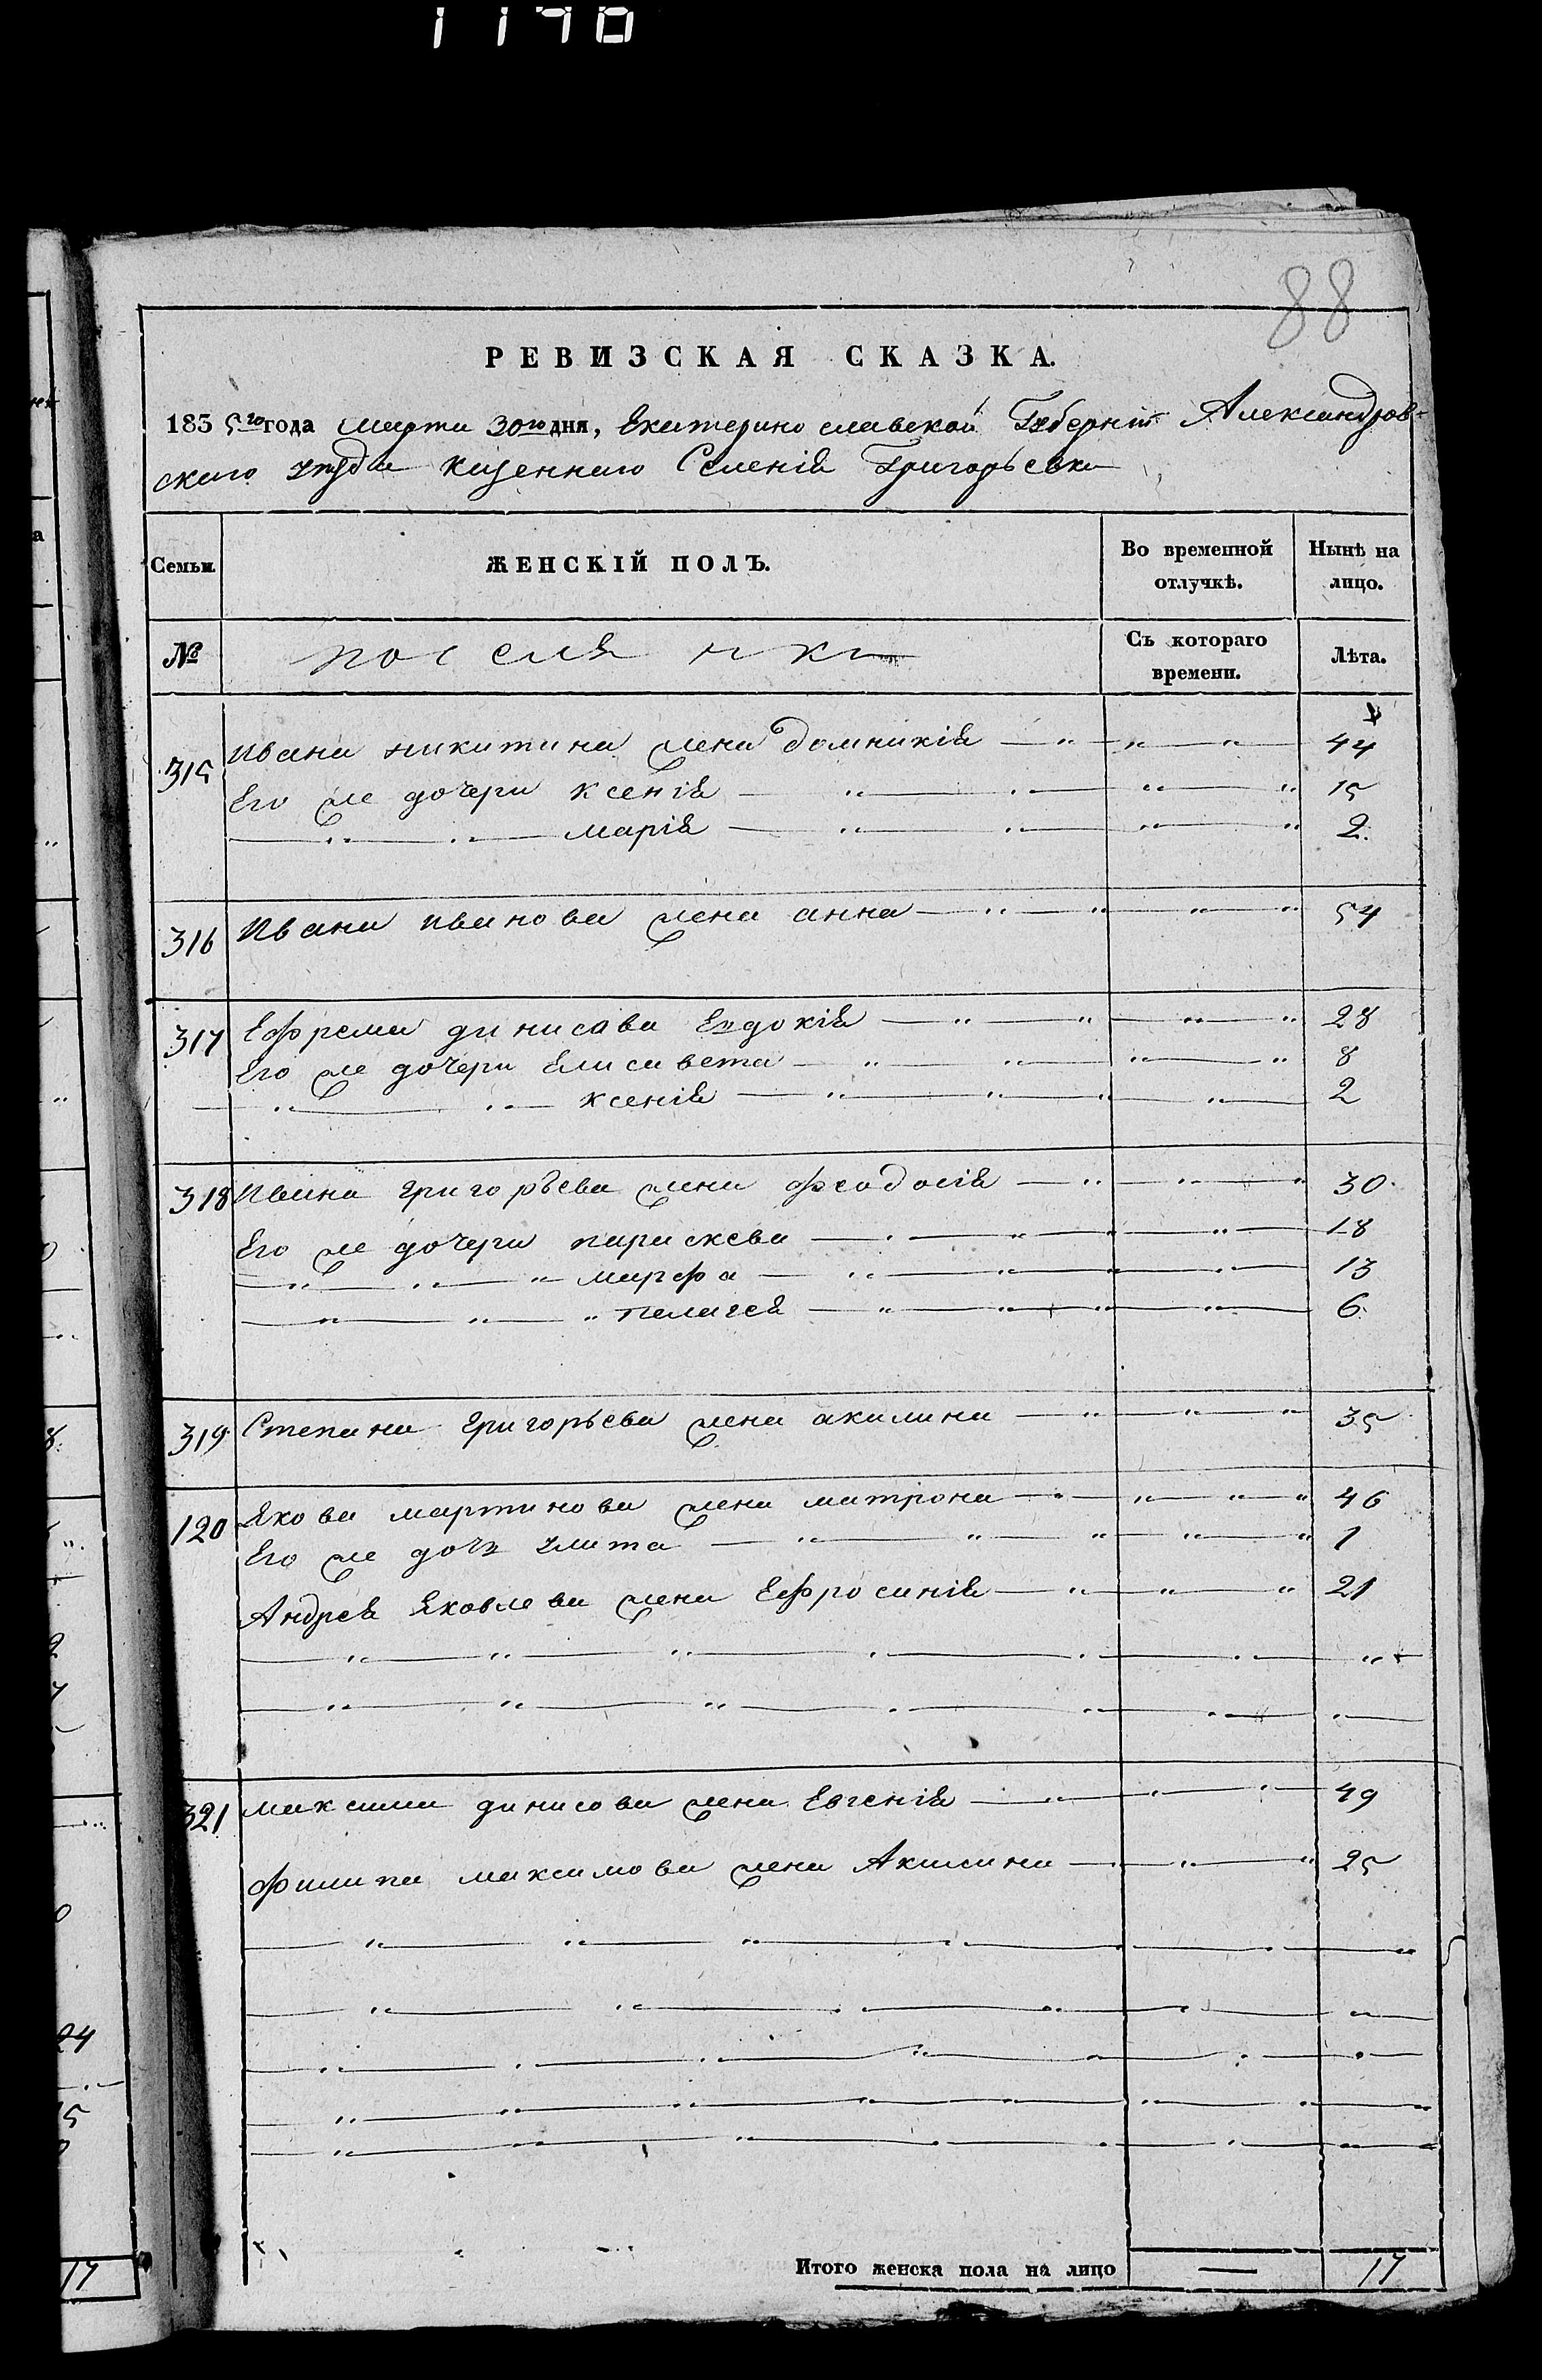 1190
88
РЕВИЗСКАЯ СКАЗКА.
1855го года марта 30го дня, Екатеринославской Губерніи Александров-
скаго уезда казеннаго Селенія Григорьевки
Семьи.
ЖЕНСКІЙ ПОЛЪ.
Во временной отлучкѣ.
Нынѣ на лицо.
№
поселянки
Съ котораго времени.
Лѣта.
315 Ивана никитина жена домникія 44
Его же дочери ксенія 15
марія 2
316 Ивана иванова жена анна 54
317 Ефрема динисова Евдокія 28
Его же дочери Елисавета 8
ксенія 2
318 Ивана григорьева жена феодосія 30
Его же дочери параскева 18
марфа 13
пелагея 6
319 Степана григорьева жена акилина 35
120 Якова мартинова жена матрона 46
Его же дочь улита 1
Андрея Яковлева жена Ефросинія 21
321 максима динисова жена Евгенія 49
филипа максимова жена Акилина 25
Итого женска пола на лицо — 17